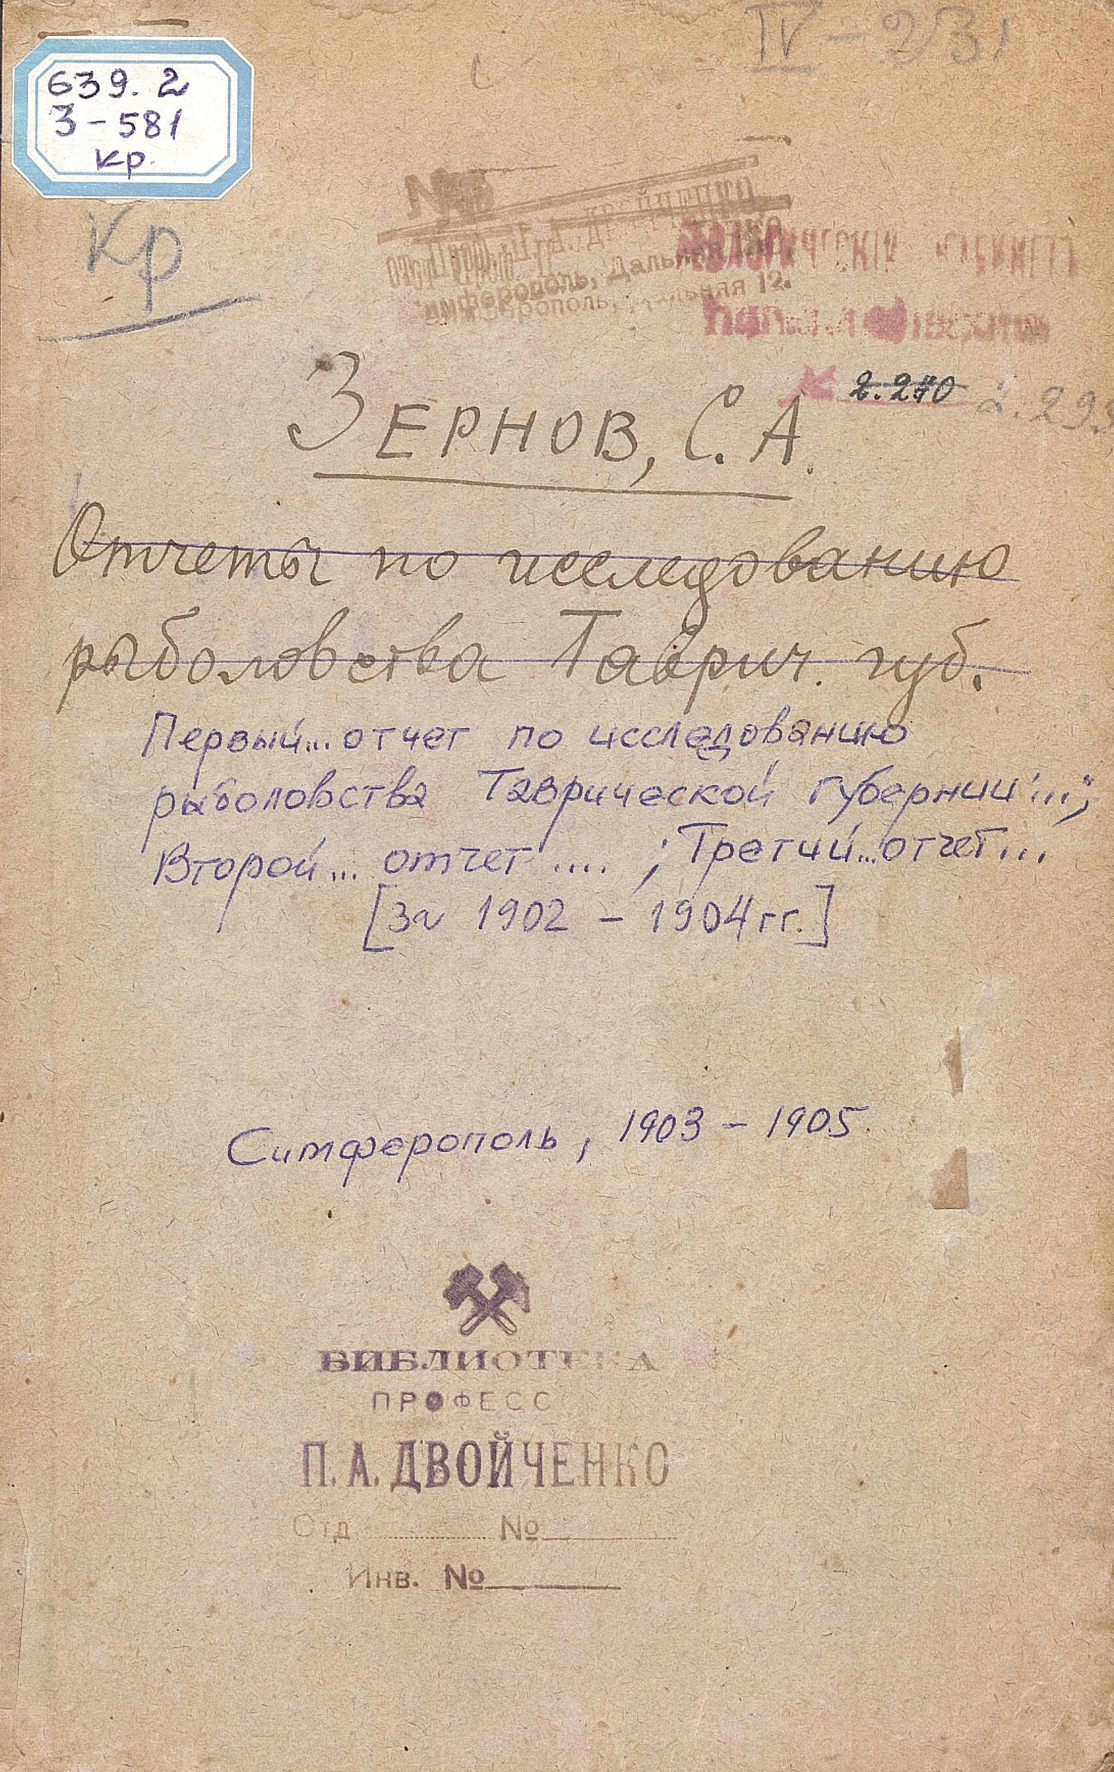 IV - 231
639.2
З-581
кр.
Кр
№
Проф. П. А. Двойченко
Симферополь, Дальняя 12.
2.240
2.293
ЗЕРНОВ, С. А.
Отчеты по исследованию
рыболовства Таврич. губ.
Первый... отчет по исследованию
рыболовства Таврической губернии...";
Второй... отчет ....; Третий... отчет...
[За 1902 - 1904 гг.]
Симферополь, 1903 - 1905.
БИБЛИОТЕКА
ПРОФЕСС
П. А. ДВОЙЧЕНКО
Отд №
Инв. №